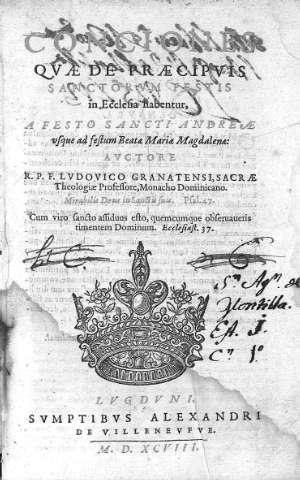 CONCIONES
QVÆ DE PRÆCIPVIS
SANCTORVM FESTIS
in Ecclesia habentur,
A FESTO SANCTI ANDREÆ
vsque ad festum Beatæ Mariæ Magdalenæ:
AVCTORE
R. P. F. LVDOVICO GRANATENSI, SACRÆ
Theologiæ Professore, Monacho Dominicano.
Mirabilis Deus in Sanctis suis. Psal. 47.
Cum viro sancto assiduus esto, quemcumque obseruaueris
timentem Dominum. Ecclesiast. 37.
Sn Agn de
Montilla.
Est. I.
Cn 1º
LVGDVNI.
SVMPTIBVS ALEXANDRI
DE VILLENEVFVE.
M. D. XCVIII.